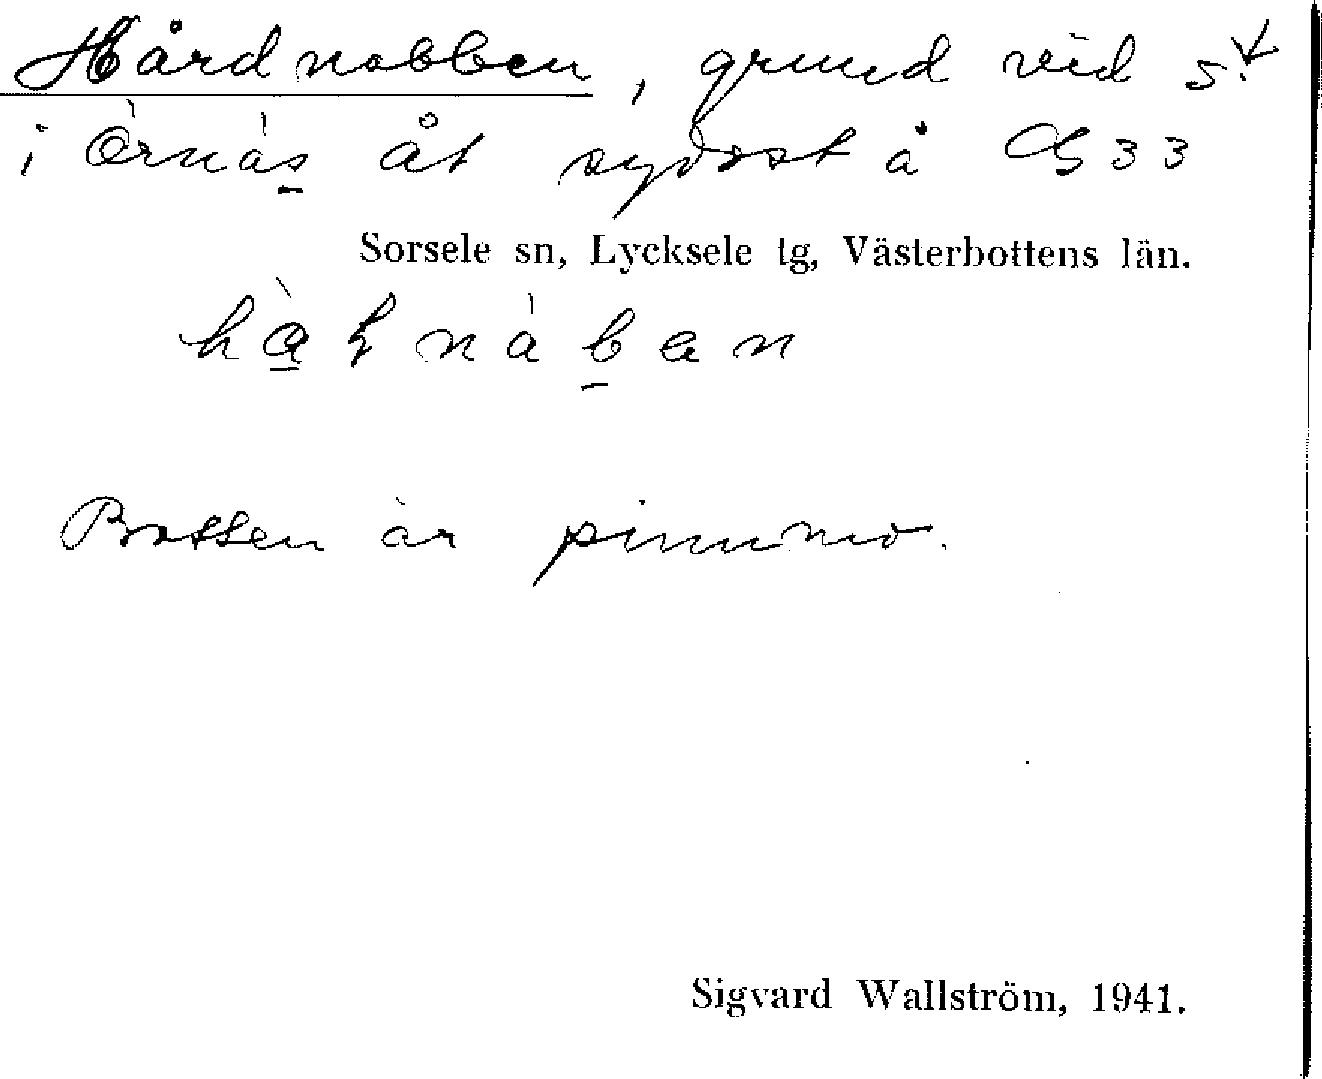 Hårdnabben, grund vid s.
i Örnäs åt sydost å G 33
Sorsele sn, Lycksele tg, Västerbottens län.
Botten är pinnmo.
Sigvard Wallström, 1941.